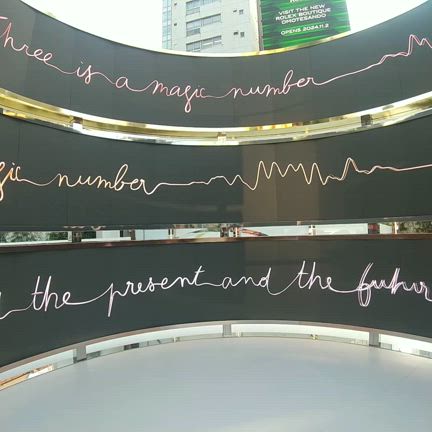 VISIT THE NEW
ROLEX BOUTIQUE
OMOTESANDO
OPENS 2024.11.2
Three is a magic number
gic number
the present and the futur